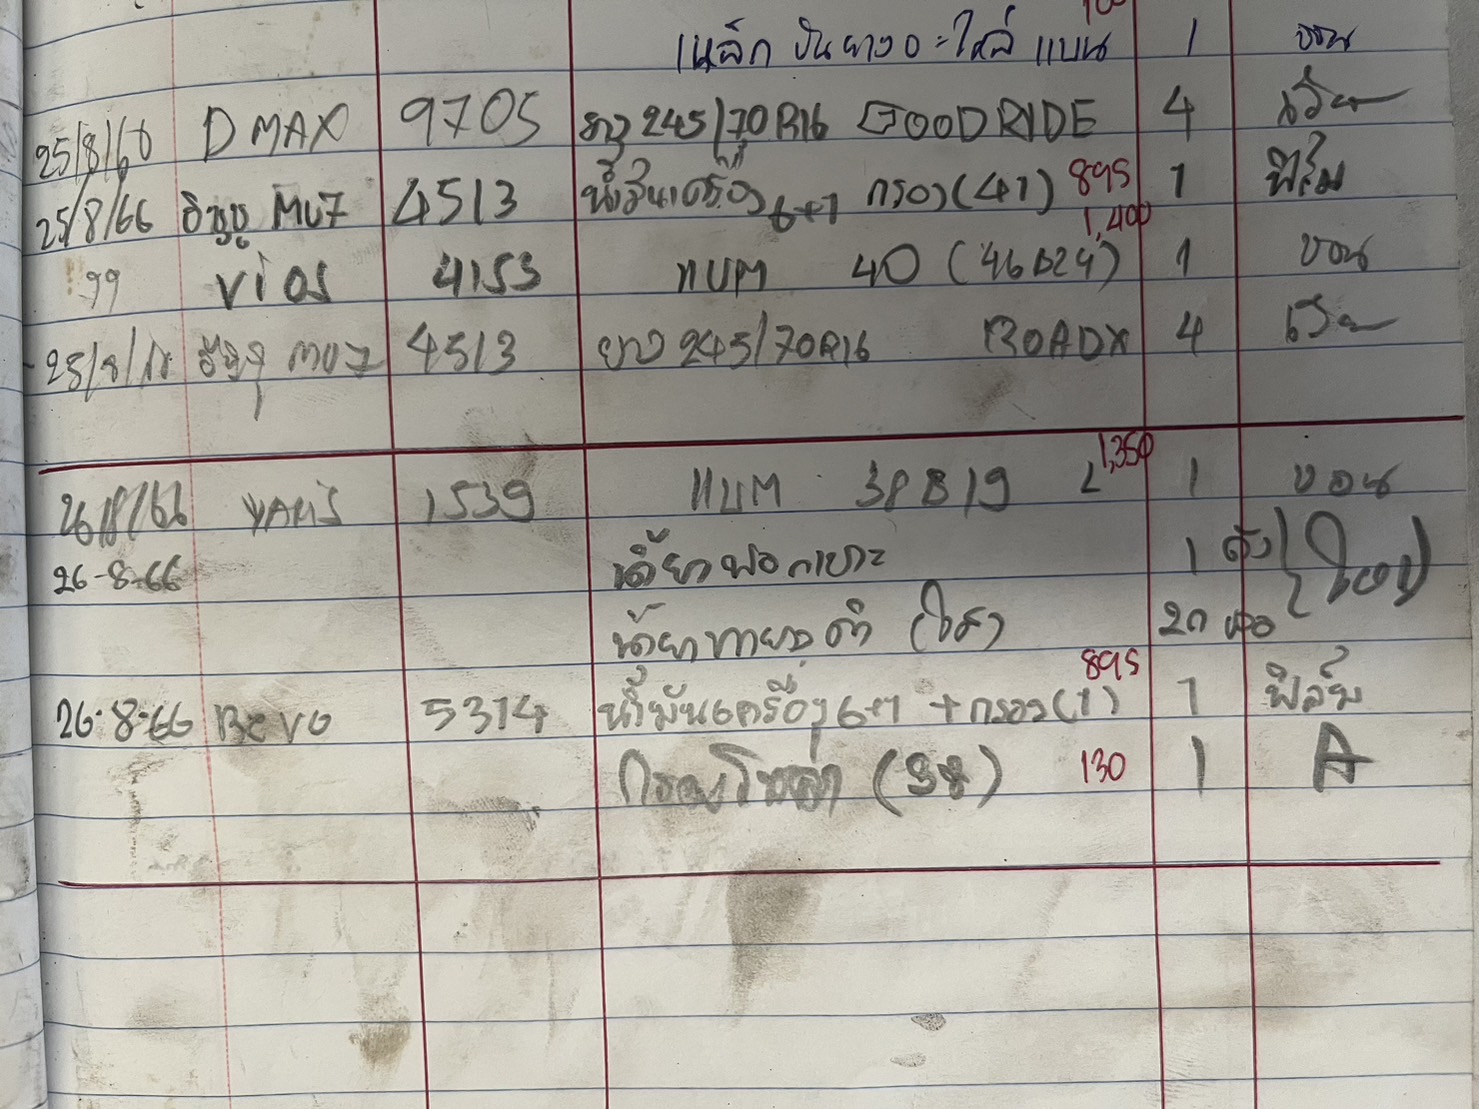 เหล็ก ปั๊นยาง อะไหล่ แบน 1 บอน
25/8/66 D MAX 9705 ยาง 245/70R16 GOODRIDE 4
25/8/66 อีซูซุ MU7 4513 น้ำมันเครื่อง 6+1 กรอง (41) 895 1 ฟิล์ม
99 Vios 4153 แบต 40 (46B24) 1,400 1 บอน
25/8/66 อีซูซุ MU7 4513 ยาง 245/70R16 ROADX 4
26/8/66 YARIS 1539 แบต 38B19 L 1,350 1 บอน
26-8-66 น้ำยาฟอกเบาะ 1 ถัง
น้ำยาทายางดำ (ใส)
26-8-66 Revo 5314 น้ำมันเครื่อง 6+1 + กรอง (1) 895 1 ฟิล์ม
กรองโซล่า (38) 130 1 A